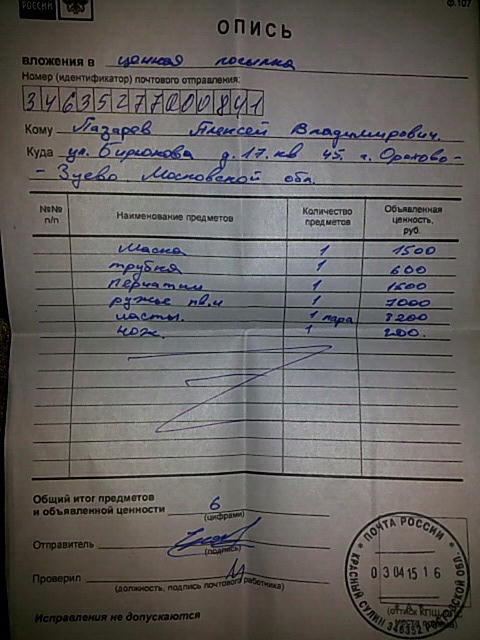 РОССИИ
ф.107
ОПИСЬ
вложения в ценная посылка
Номер (идентификатор) почтового отправления:
34635277000841
Кому Лазарев Алексей Владимирович.
Куда ул. Бирюкова д. 17. кв 45. г. Орехово-
- Зуево Московской обл.
№№ п/п Наименование предметов Количество предметов Объявленная ценность, руб.
Маска 1 1500
трубка 1 600
перчатки 1 1600
ружье пв.м 1 7000
ласты. 1 пара 3200
нож. 1 200.
Общий итог предметов
и объявленной ценности 6
(цифрами)
Отправитель
(подпись)
Проверил
(должность, подпись почтового работника)
Исправления не допускаются
ПОЧТА РОССИИ
03 04 15 16
КРАСНЫЙ СУЛИН 346352 РОСТОВСКОЙ ОБЛ.
(оттиск КПШ ОПС
места приема)